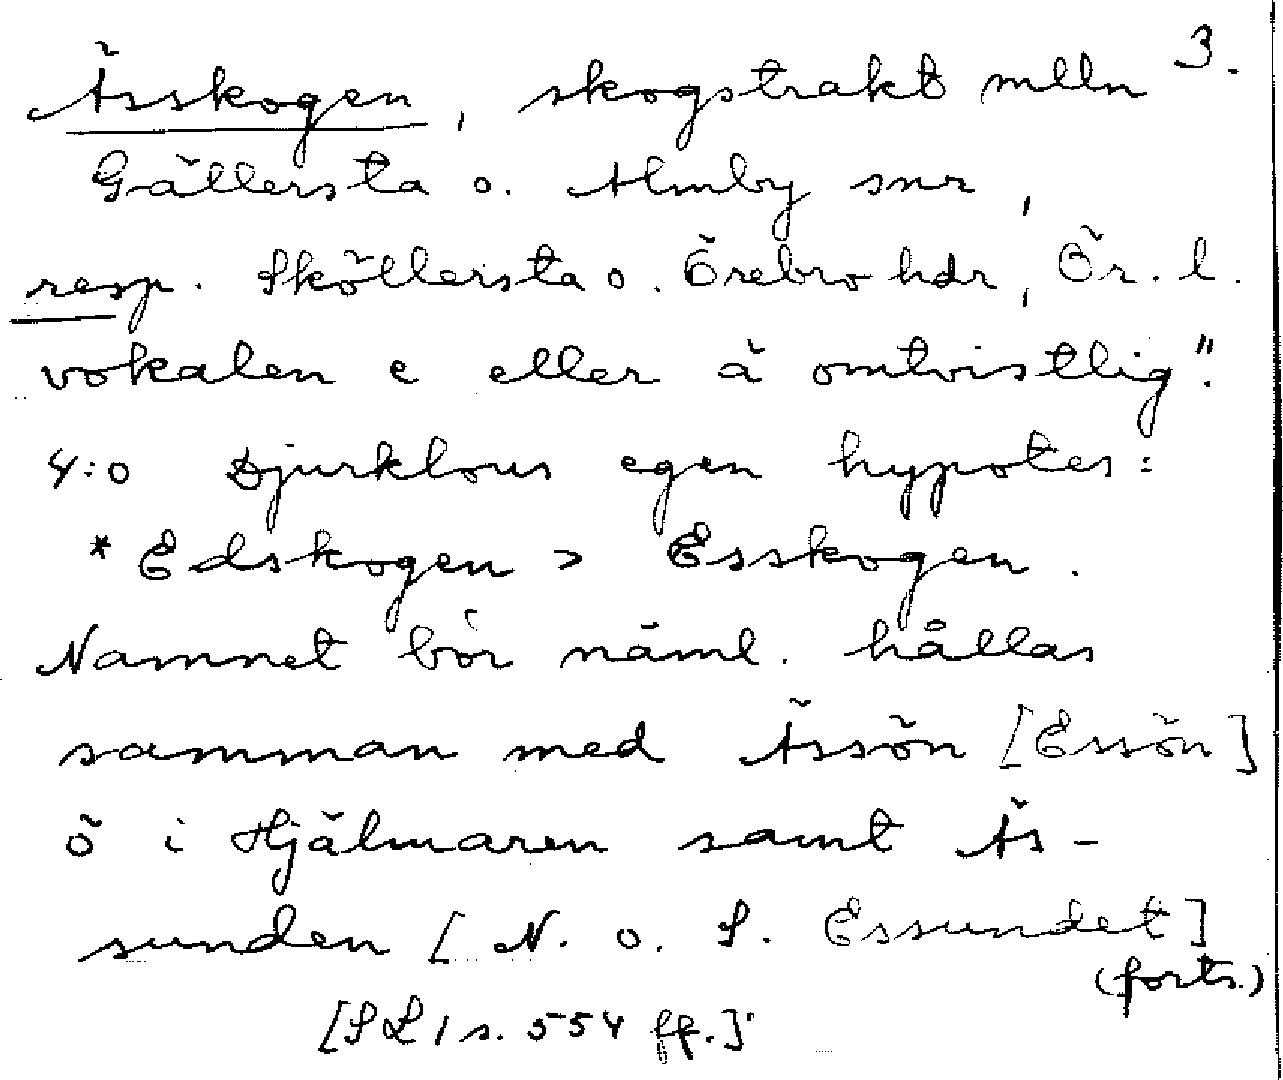 3.
Ässkogen, skogstrakt mlln
Gällersta o. Almby snr,
resp. Sköllersta o. Örebro hdr, Ör. l.
vokalen e eller ä omtvistlig".
4:o Djurklous egen hypotes:
* Edskogen > Esskogen.
Namnet bör näml. hållas
samman med Ässön [Essön]
ö i Hjälmaren samt Äs-
sunden [N. o. S. Essundet]
(forts.)
[SL 1 s. 554 ff.]